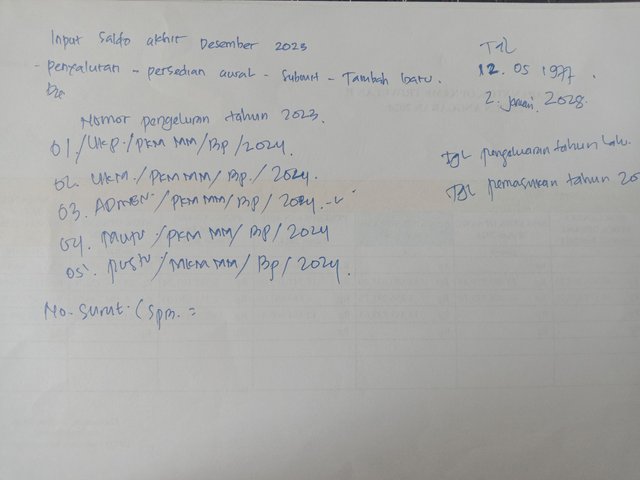 Input Saldo akhir Desember 2023
- penyaluran - persedian awal - Submit - Tambah baru.
Nomor pengeluran tahun 2023.
01./UKP./PKM MM/BP/2024.
02. UKM./PKM MM/BP./2024.
03. ADMEN./PKM MM/BP/2024.-
04. Mutu/PKM MM/BP/2024
05. pustu/MKM MM/BP/2024.
No. Surat. (Spm. =
TGL
12. 05 1977.
2. Januari. 2028.
TGL pengeluaran tahun lalu.
TGL pemasukan tahun 20